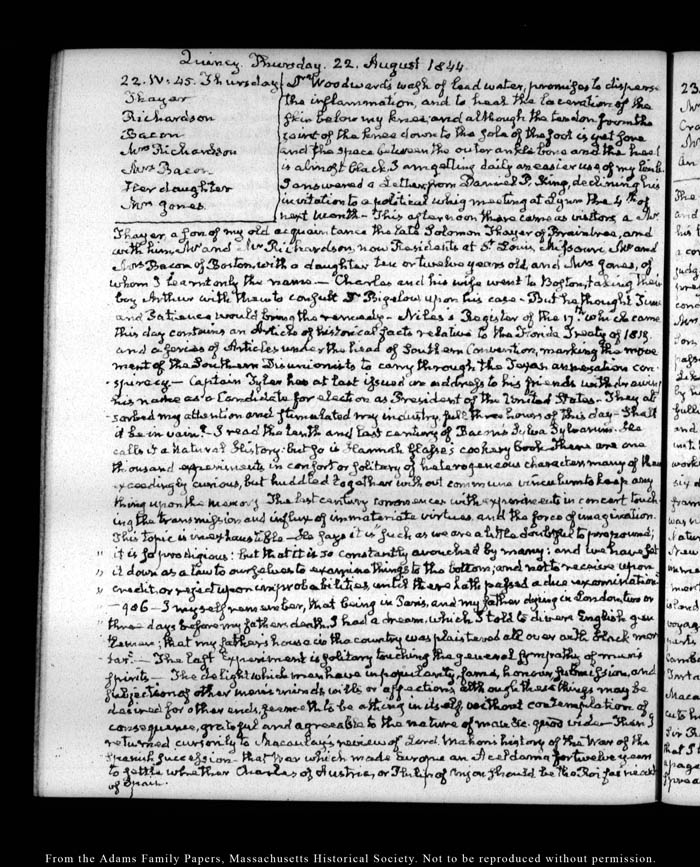 Quincy Thursday. 22. August 1844.
22. IV: 45. Thursday
Thayer
Richardson
Bacon
Mrs Richardson
Mrs Bacon
Her daughter
Mrs Jones.
Dr Woodward's wash of lead water, promises to disperse
the inflammation, and to heal the laceration of the
skin below my knee; and although the tendon from the
joint of the knee down to the sole of the foot is yet sore
and the space between the outer ankle bone and the heel
is almost black, I am getting daily an easier use of my limb.
I answered a Letter from Daniel P. King, declining his
invitation to a political whig meeting at Lynn the 4th of
next month— This afternoon there came as visitors, a Mr
Thayer, a son of my old acquaintance the late Solomon Thayer of Braintree, and
with him, Mr and Mrs Richardson, now Residents at St Louis, Missouri, Mr and
Mrs Bacon of Boston, with a daughter ten or twelve years old, and Mrs Jones, of
whom I learnt only the name— Charles and his wife went to Boston, taking their
boy Arthur with them to consult Dr Bigelow upon his case— But he thought Time
and Patience would bring the remedy— Niles's Register of the 17th which came
this day contains an Article of historical facts relative to the Florida Treaty of 1819.
and a series of Articles under the head of Southern Convention, marking the move
ment of the Southern Disunionists to carry through the Texas annexation con-
-spiracy— Captain Tyler has at last issued an address to his friends withdrawing
his name as a Candidate for election as President of the United States— They ab-
sorbed my attention and stimulated my industry full three hours of this day— Shall
it be in vain?— I read the tenth and last century of Bacon's Sylva Sylvarum. He
calls it a Natural History: but so is Hannah Glasse's cookery book. There are one
thousand experiments in consort or solitary of heterogeneous character many of them
exceedingly curious, but huddled together without commune vinculum to keep any
thing upon the memory The last century commences with experiments in concert touch-
ing the transmission and influx of immateriate virtues, and the force of imagination.
This topic is inexhaustible— He says it is "such as we are a little doubtful to propound;
" it is so prodigious: but that it is so constantly avouched by many: and we have set
" it down as a law to ourselves to examine things to the bottom; and not to receive upon
" credit, or reject upon improbabilities, until there hath passed a due examination
—986— I myself remember, that being in Paris, and my father dying in London, two or
three days before my fathers death, I had a dream, which I told to divers English gen
tlemen; that my father's house in the country was plaistered all over with black mor
tar."— The last Experiment is solitary touching the general sympathy of men's
spirits— The delight which men have in popularity, fame, honour, submission, and
subjection of other mens minds, wills or affections although these things may be
desired for other ends, seemeth to be a thing in itself without contemplation of
consequence, grateful and agreeable to the nature of man &c. quod vide— Then I
returned cursorily to Macaulay's review of Lord Mahon's history of the War of the
Spanish Succession— that War which made Europe an Aceldama for twelve years
to settle whether Charles of Austria, or Philip of Anjou should be the
of Spain.
From the Adams Family Papers, Massachusetts Historical Society. Not to be reproduced without permission.